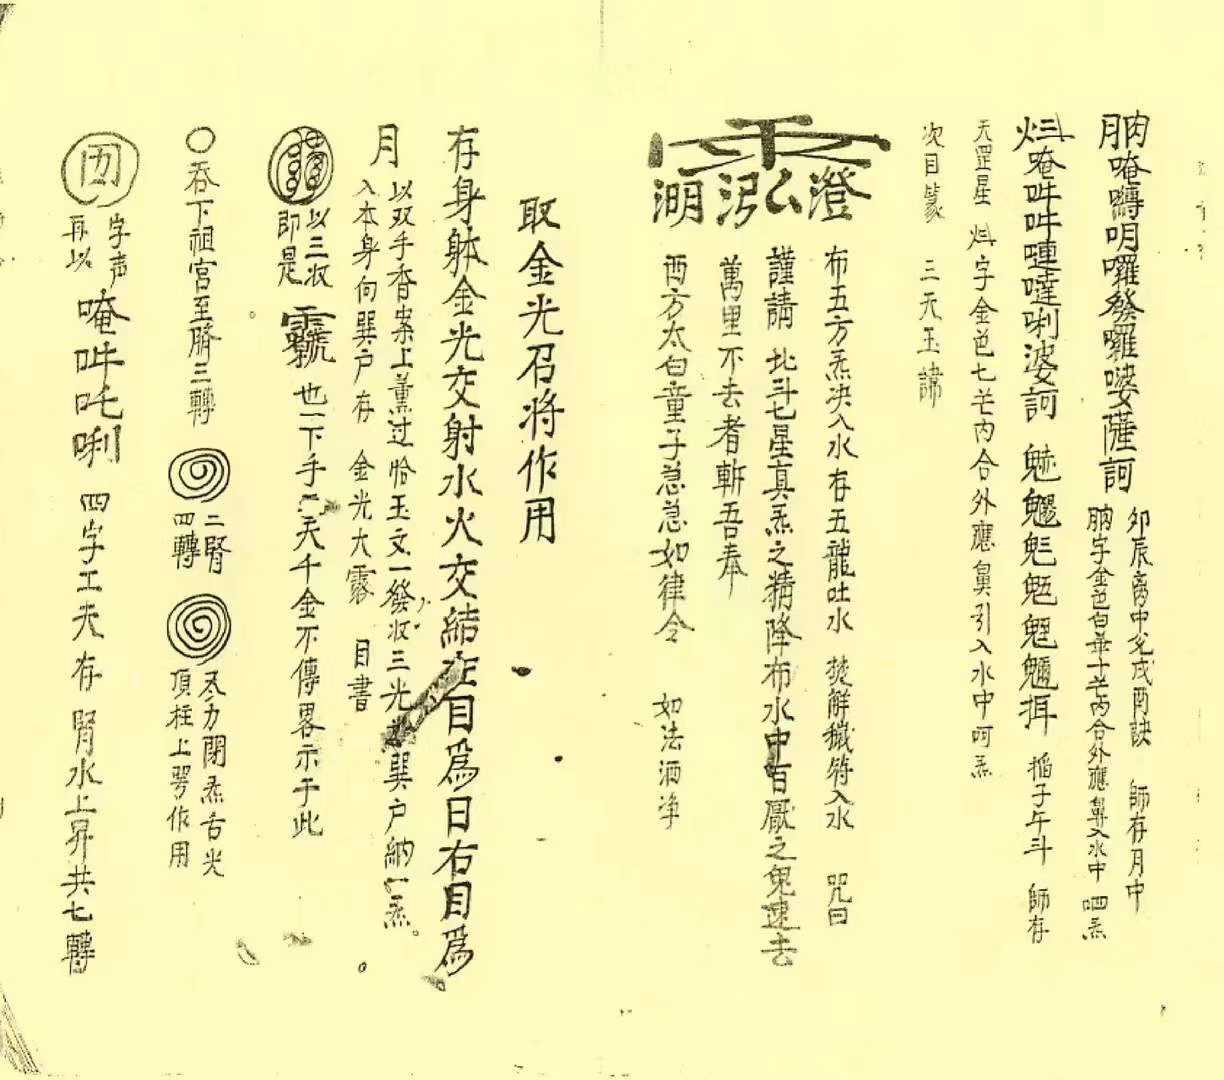 唵嚩明囉發囉婆薩訶
卯辰
師存月中
字金色白華十芒內合外應鼻入水中
炁
唵吽吽嗹噠唎婆訶
子午斗
師存
天罡星
字金色七芒內合外應鼻引入水中呵炁
次目篆
三天玉諱
澄
泓
湖
布五方炁決入水存五龍吐水
焚解穢符入水
咒曰
謹請
北斗七星真炁之精降布水中百厭之鬼速去
萬里不去者斬吾奉
西方太白童子急急如律令
如法洒净
取金光召将作用
存身躰金光交射水火交結在目為日右目為
月
以双手香案上薰过恰玉文一發收三光
巽户納一炁
入本身向巽户存
金光大露
目書
以三收
即是
也一下手二天千金不傳畧示于此
○吞下祖宮至臍三轉
二腎
四轉
尽力閉炁舌尖
頂柱上咢作用
字声
再以
唵吽吒唎
四字工夫存
腎水上昇共七轉